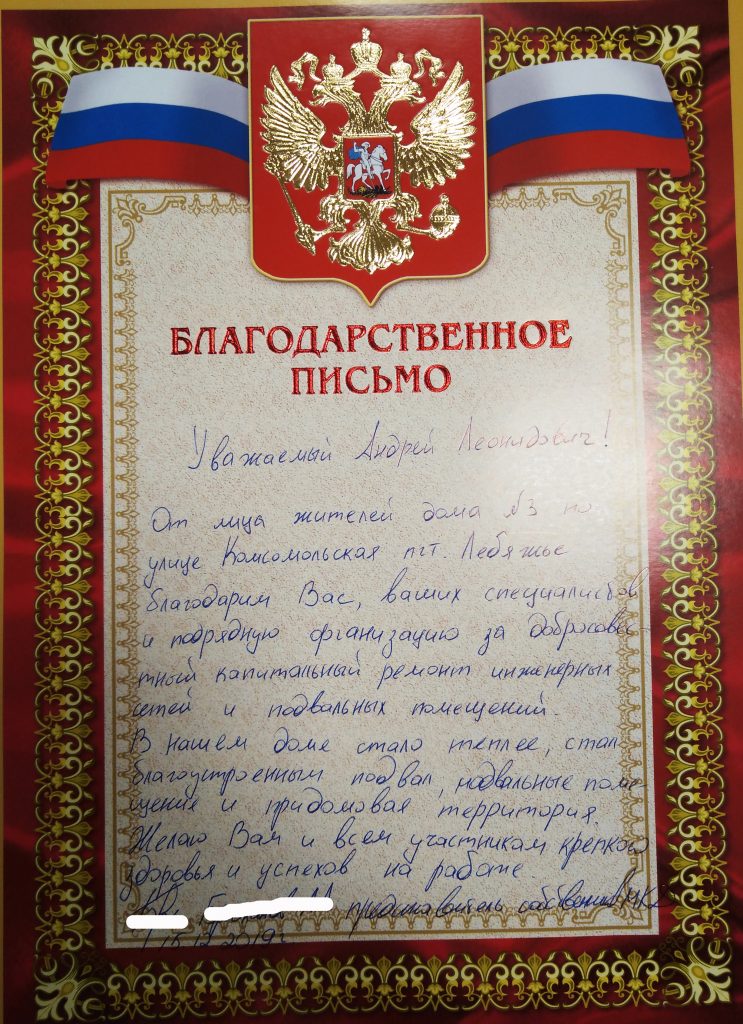 БЛАГОДАРСТВЕННОЕ
ПИСЬМО
Уважаемый Андрей Леонидович!
От лица жителей дома №3 по
улице Комсомольская пгт. Лебяжье
благодарим Вас, ваших специалистов
и подрядную организацию за добросовес-
тный капитальный ремонт инженерных
сетей и подвальных помещений.
В нашем доме стало теплее, стал
благоустроенным подвал, подвальные поме-
щение и придомовая территория.
Желаю Вам и всем участникам крепкого
здоровья и успехов на работе.
представитель собственников МКД
2019г